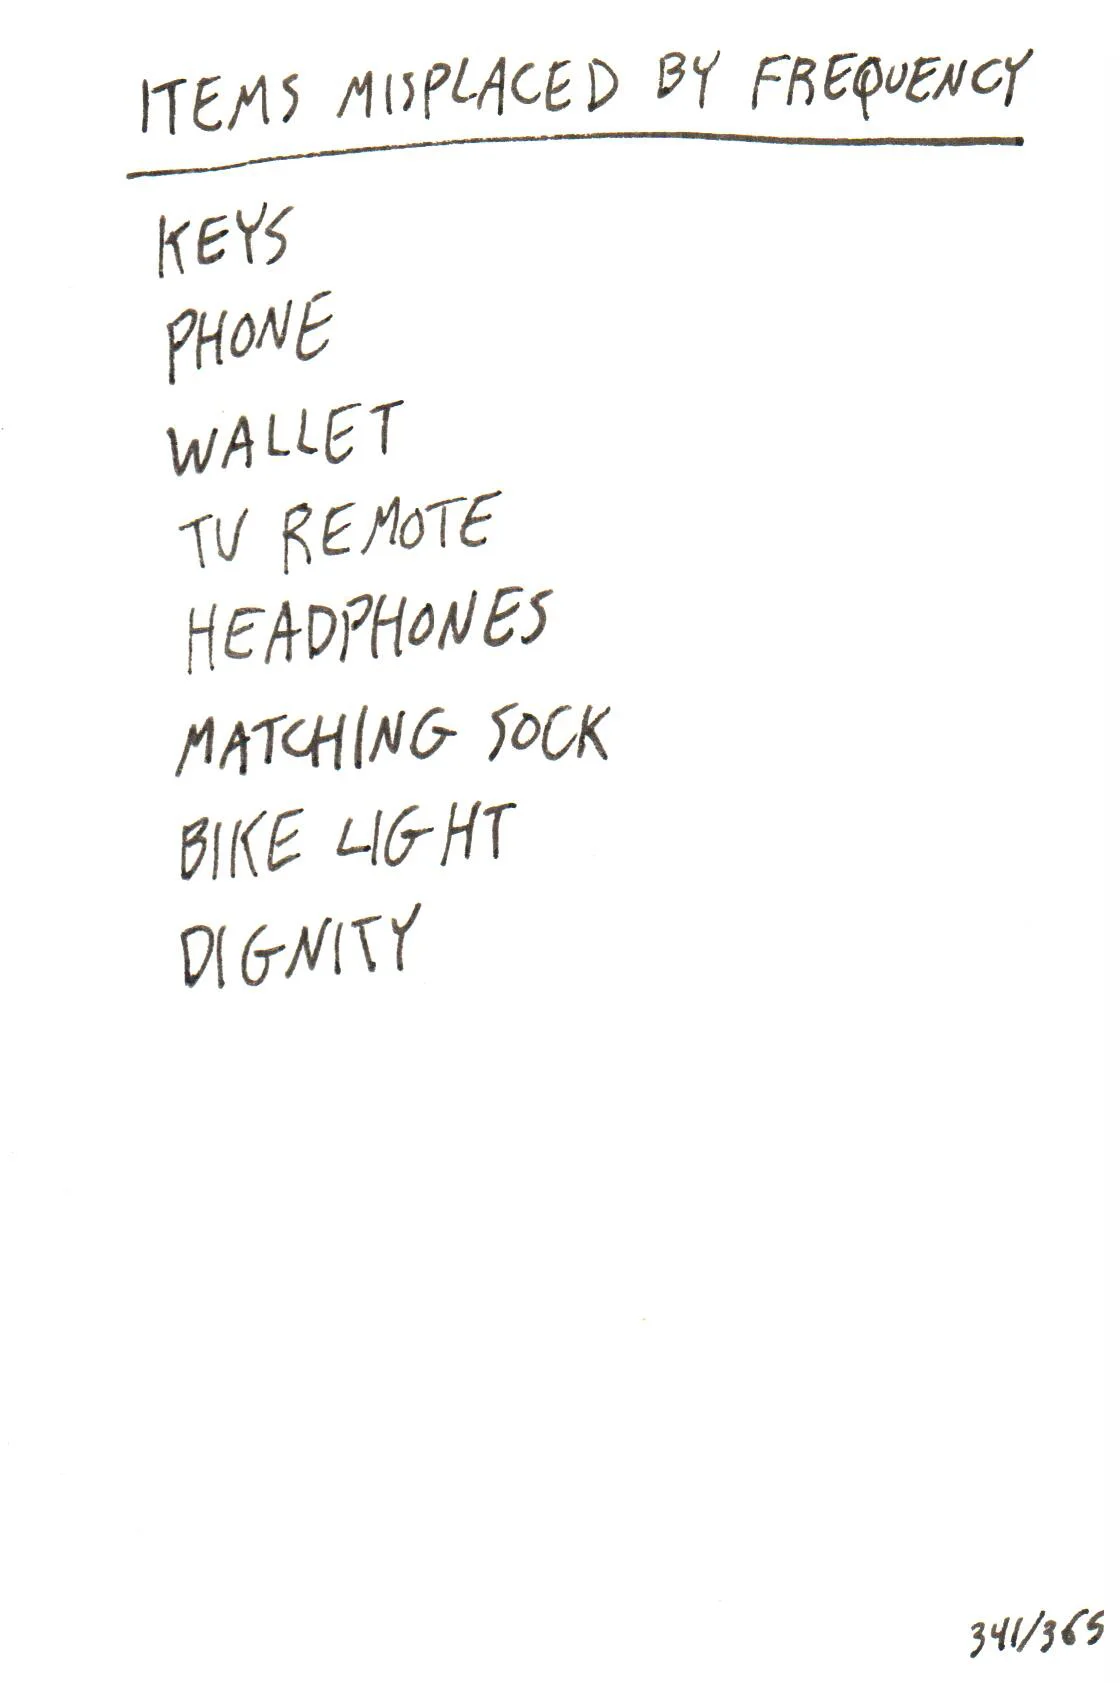 ITEMS MISPLACED BY FREQUENCY
KEYS
PHONE
WALLET
TV REMOTE
HEADPHONES
MATCHING SOCK
BIKE LIGHT
DIGNITY
341/365